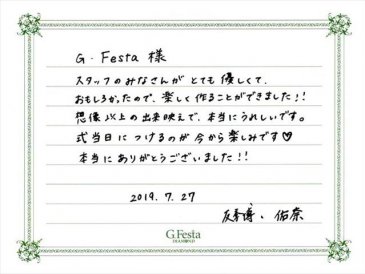 G・Festa 様
スタッフのみなさんが とても 優しくて、
おもしろかったので、楽しく 作ることができました!!
想像以上の出来映えで、本当にうれしいです。
式当日に つけるのが 今から楽しみです♡
本当に ありがとうございました!!
2019. 7. 27
佑奈
G.Festa
DIAMOND